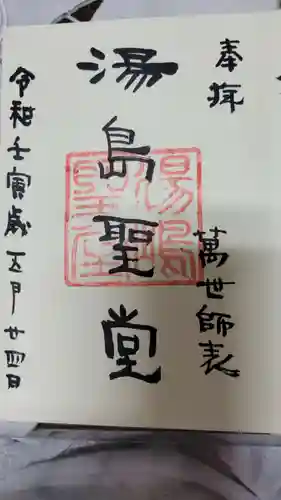 奉拝
萬世師表
湯島聖堂
令和壬寅歳五月廿四日